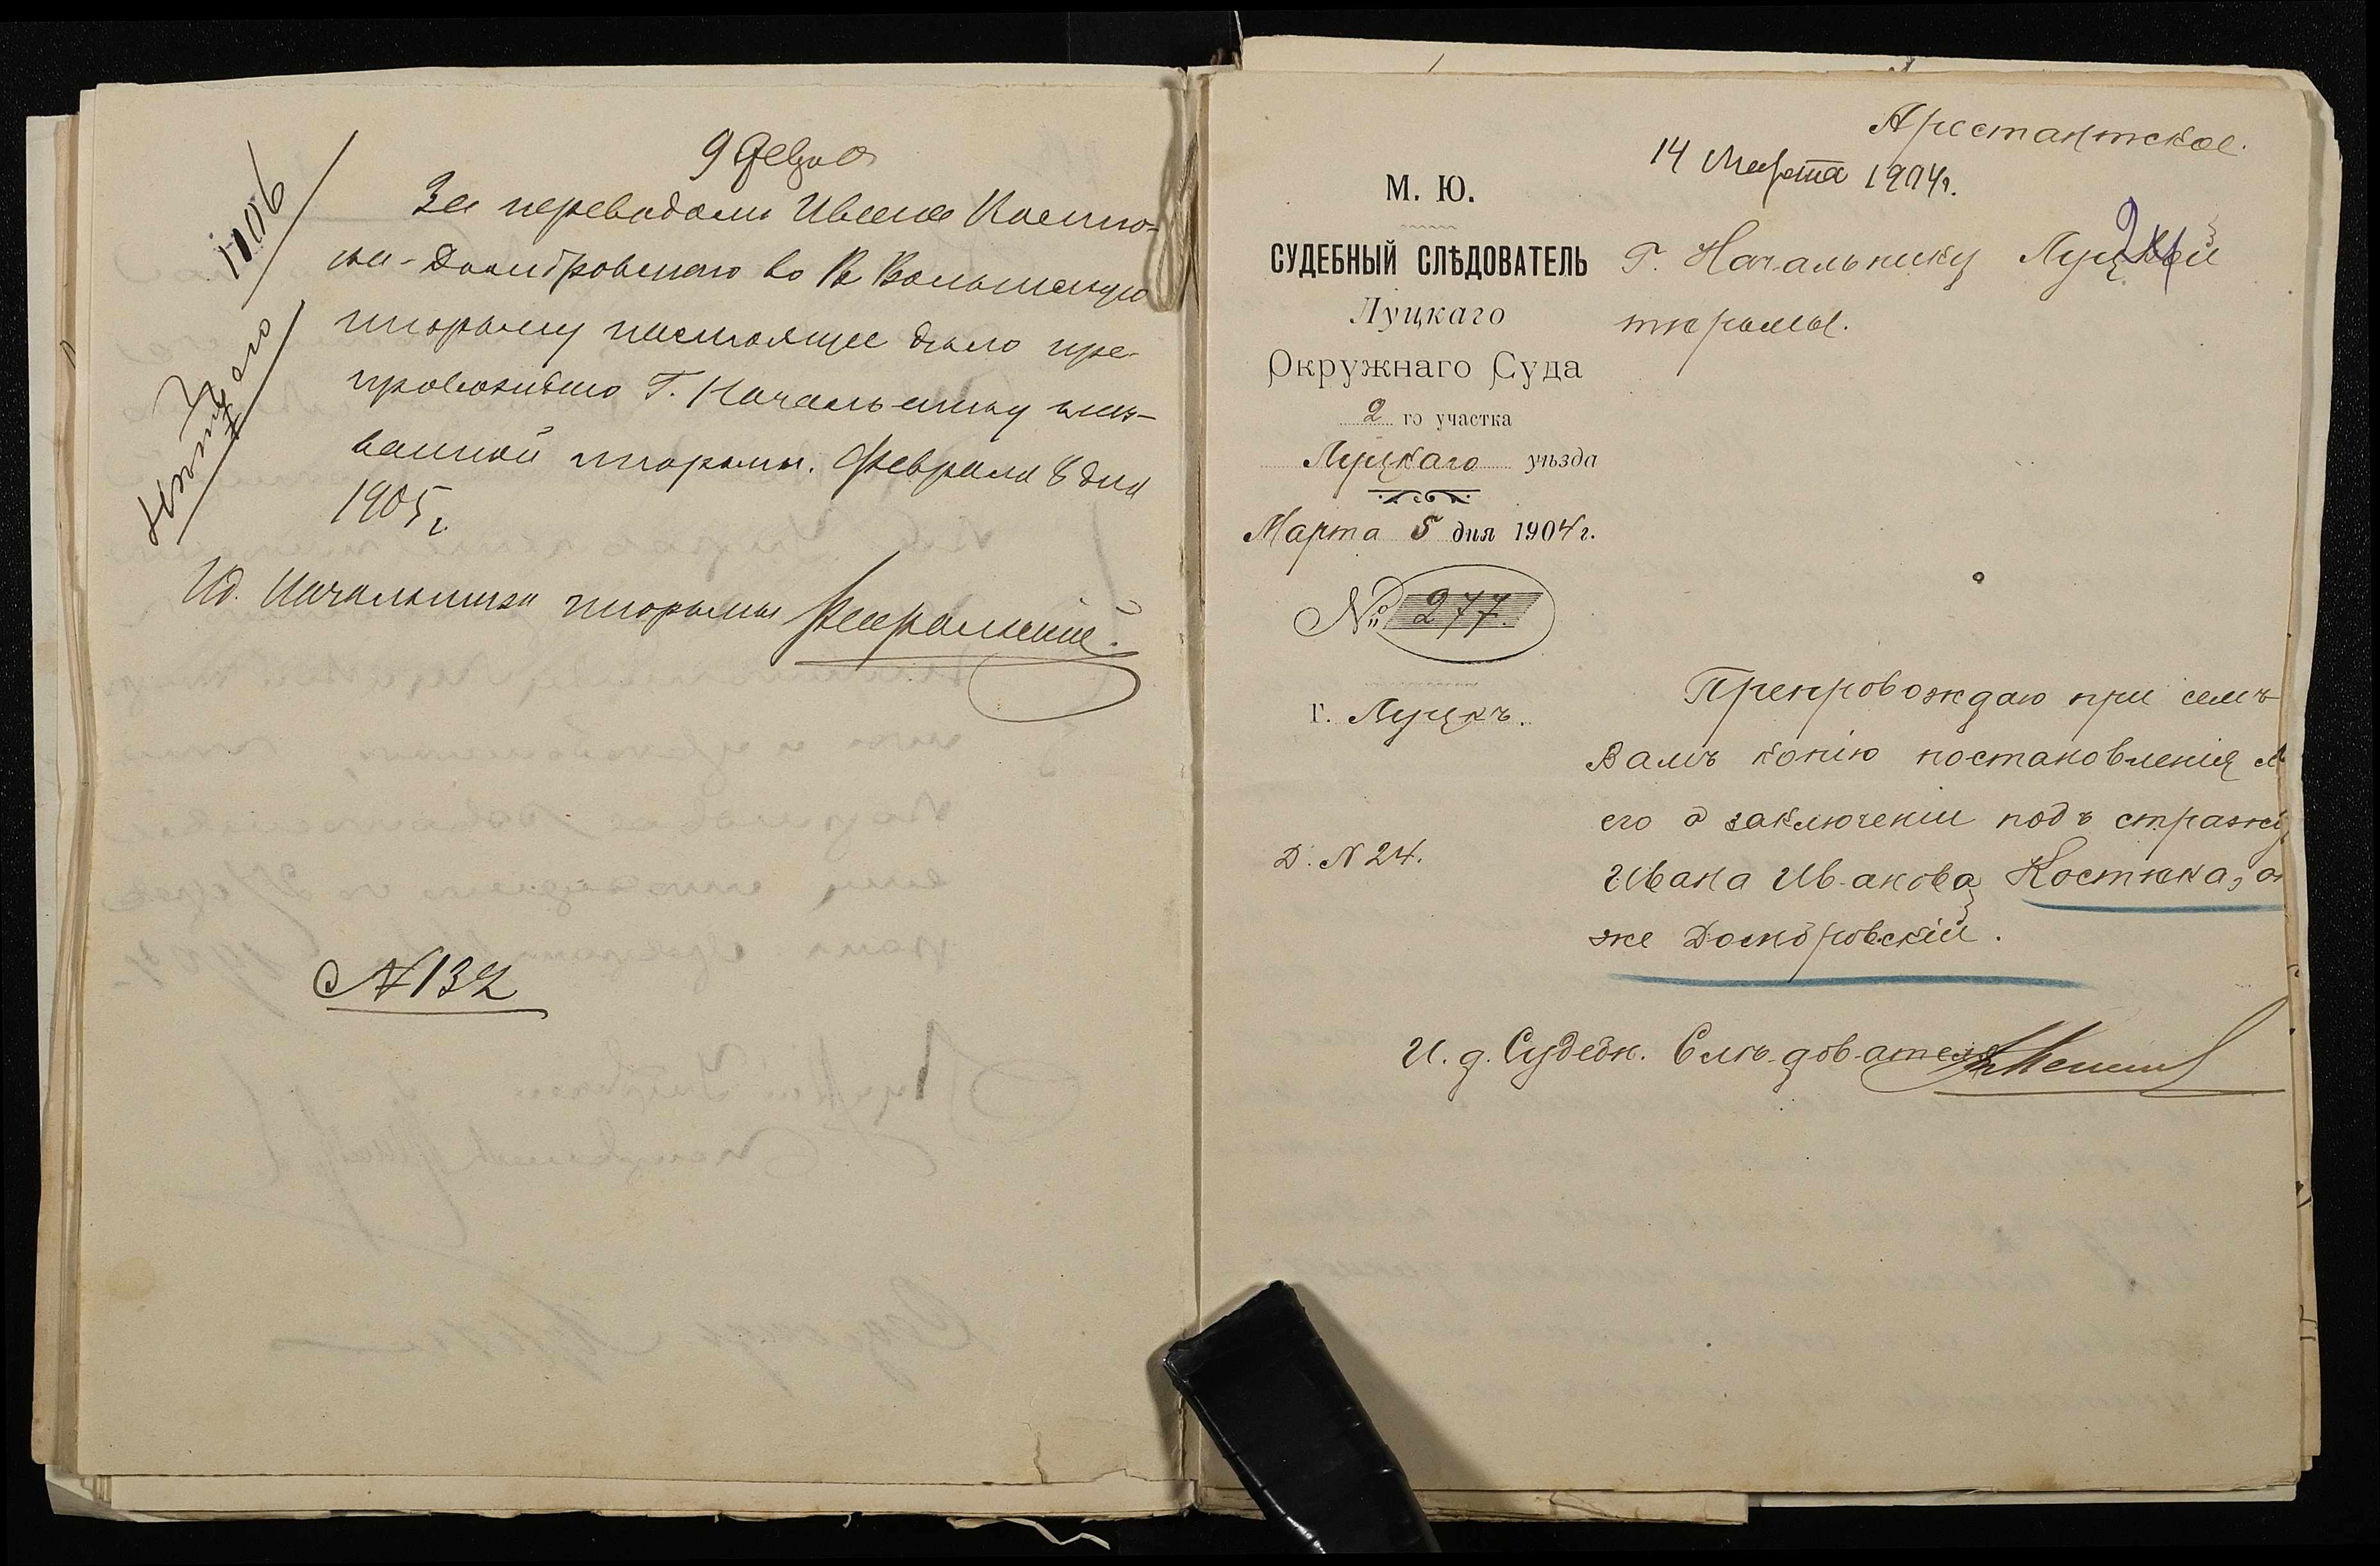 9 Февр
1106
За переводомъ Ивана Костю-
ка-Домбровскаго во В Волынскую
тюрьму настоящее дѣло пре-
провождаю Г. Начальнику наз-
ванной тюрьмы. Февраля 8 дня
1905 г.
Ид. Начальника тюрьмы
№ 132
Арестантское.
14 Марта 1904 г.
М. Ю.
СУДЕБНЫЙ СЛѢДОВАТЕЛЬ
Луцкаго
Окружнаго Суда
2 го участка
Луцкаго уѣзда
Марта 5 дня 1904 г.
№ 277.
г. Луцкъ.
Д. № 24.
Г. Начальнику Луцкой
тюрьмы.
2
Препровождаю при семъ
Вамъ копію постановленія м
его о заключеніи подъ стражу
Ивана Иванова Костюка, он
же Домбровскій.
И. д. Судебн. Слѣдователя